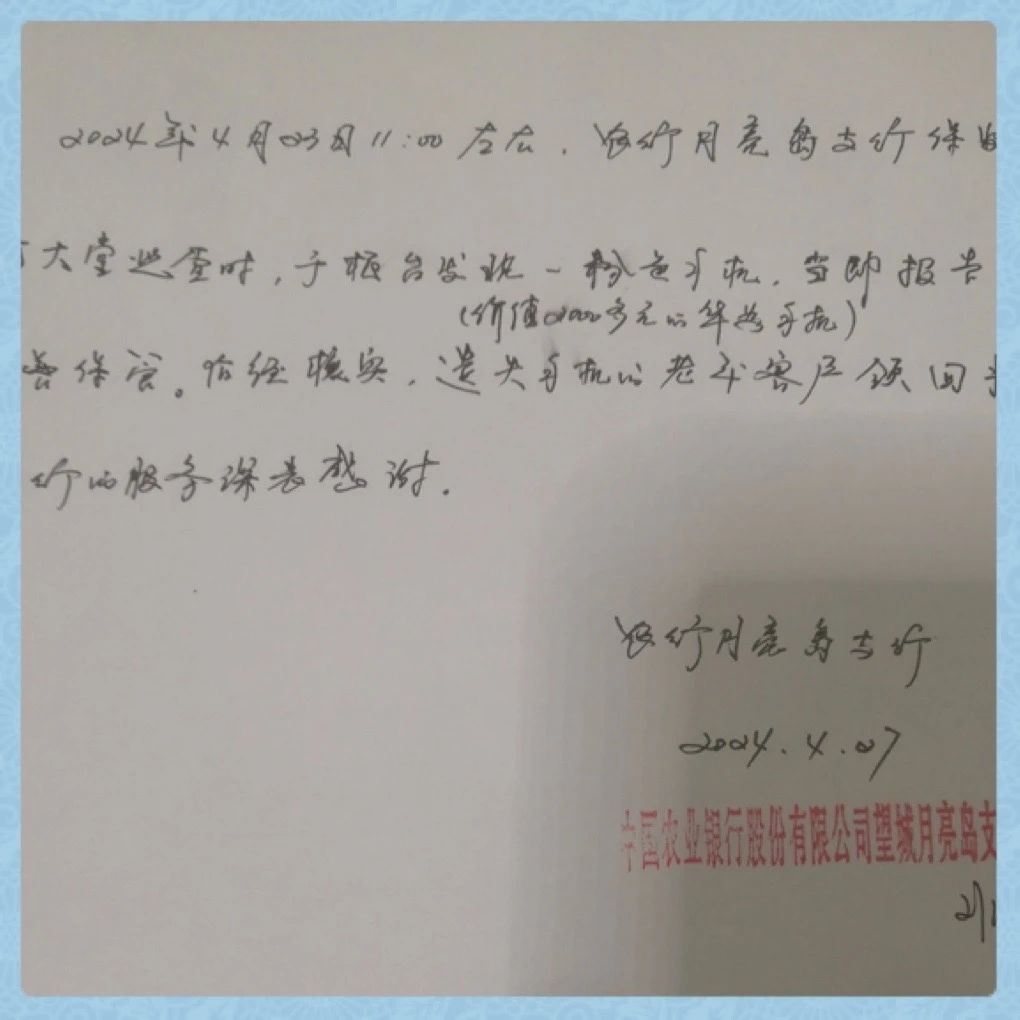 2024年4月23日11:00左右，银行月亮岛支行保
大堂巡查时，于柜台发现一粉色手机，当即报告
(价值2000多元的华为手机)
善保管。后经核实，遗失手机的老年客户领回
行的服务深表感谢.
银行月亮岛支行
2024.4.27
中国农业银行股份有限公司望城月亮岛支